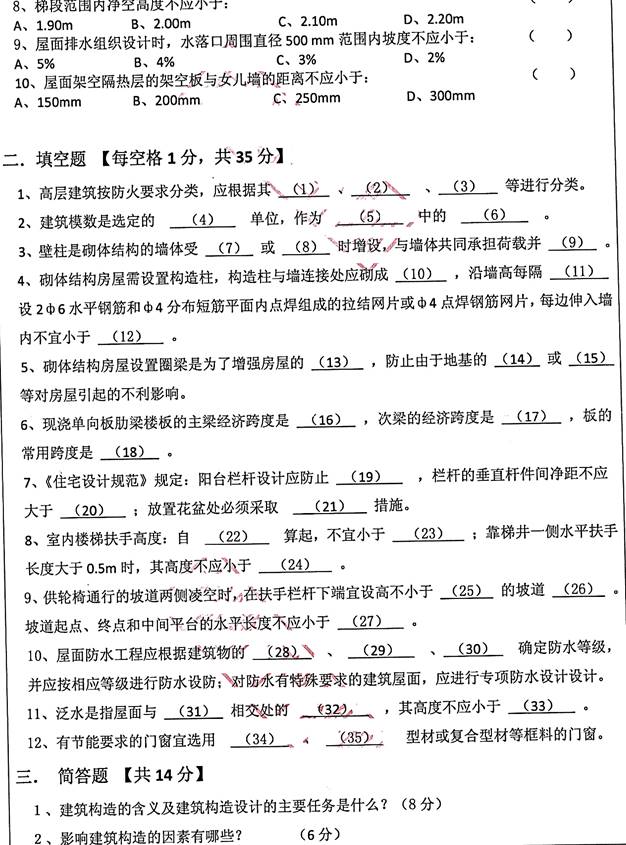 8、梯段范围内净空高度不应小于: （ ）
A、1.90m B、2.00m C、2.10m D、2.20m
9、屋面排水组织设计时，水落口周围直径 500 mm 范围内坡度不应小于: （ ）
A、5% B、4% C、3% D、2%
10、屋面架空隔热层的架空板与女儿墙的距离不应小于: （ ）
A、150mm B、200mm C、250mm D、300mm
二．填空题 【每空格 1 分，共 35 分】
1、高层建筑按防火要求分类，应根据其 （1） 、 （2） 、 （3） 等进行分类。
2、建筑模数是选定的 （4） 单位，作为 （5） 中的 （6） 。
3、壁柱是砌体结构的墙体受 （7） 或 （8） 时增设，与墙体共同承担荷载并 （9） 。
4、砌体结构房屋需设置构造柱，构造柱与墙连接处应砌成 （10） ，沿墙高每隔 （11）
设 2ф6 水平钢筋和ф4 分布短筋平面内点焊组成的拉结网片或ф4 点焊钢筋网片，每边伸入墙
内不宜小于 （12） 。
5、砌体结构房屋设置圈梁是为了增强房屋的 （13） ，防止由于地基的 （14） 或 （15）
等对房屋引起的不利影响。
6、现浇单向板肋梁楼板的主梁经济跨度是 （16） ，次梁的经济跨度是 （17） ，板的
常用跨度是 （18） 。
7、《住宅设计规范》规定：阳台栏杆设计应防止 （19） ，栏杆的垂直杆件间净距不应
大于 （20） ；放置花盆处必须采取 （21） 措施。
8、室内楼梯扶手高度：自 （22） 算起，不宜小于 （23） ；靠梯井一侧水平扶手
长度大于 0.5m 时，其高度不应小于 （24） 。
9、供轮椅通行的坡道两侧凌空时，在扶手栏杆下端宜设高不小于 （25） 的坡道 （26） 。
坡道起点、终点和中间平台的水平长度不应小于 （27） 。
10、屋面防水工程应根据建筑物的 （28） 、 （29） 、 （30） 确定防水等级，
并应按相应等级进行防水设防；对防水有特殊要求的建筑屋面，应进行专项防水设计设计。
11、泛水是指屋面与 （31） 相交处的 （32） ，其高度不应小于 （33） 。
12、有节能要求的门窗宜选用 （34） 、 （35） 型材或复合型材等框料的门窗。
三． 简答题 【共 14 分】
1、建筑构造的含义及建筑构造设计的主要任务是什么？（8 分）
2、影响建筑构造的因素有哪些？ （6 分）